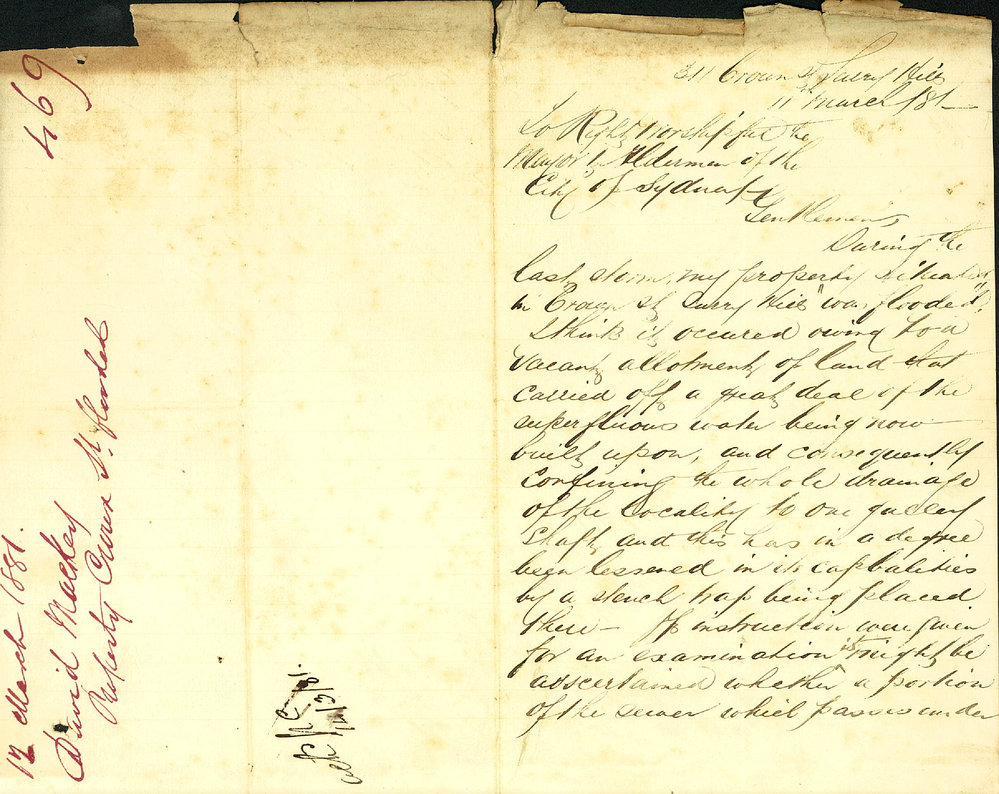 469
17 March 1881.
David Mackey
Property Crown St. flooded
17/3/81.
311 Crown St Surry Hills
11th March /81
To Right Worshipful the
Mayor & Alderman of the
City of Sydney
Gentlemen,
During the
last storm, my property situated
in Crown St Surry Hills was flooded.
I think it occured owing to a
vacant allotment of land that
carried off a great deal of the
superfluous water being now
built upon, and consequently
confining the whole drainage
of the locality to one gulley
shaft, and this has in a degree
been lessened in its capbalities
by a stench trap being placed
there — If instruction were given
for an examination it might be
asscertained whether a portion
of the sewer which passes under